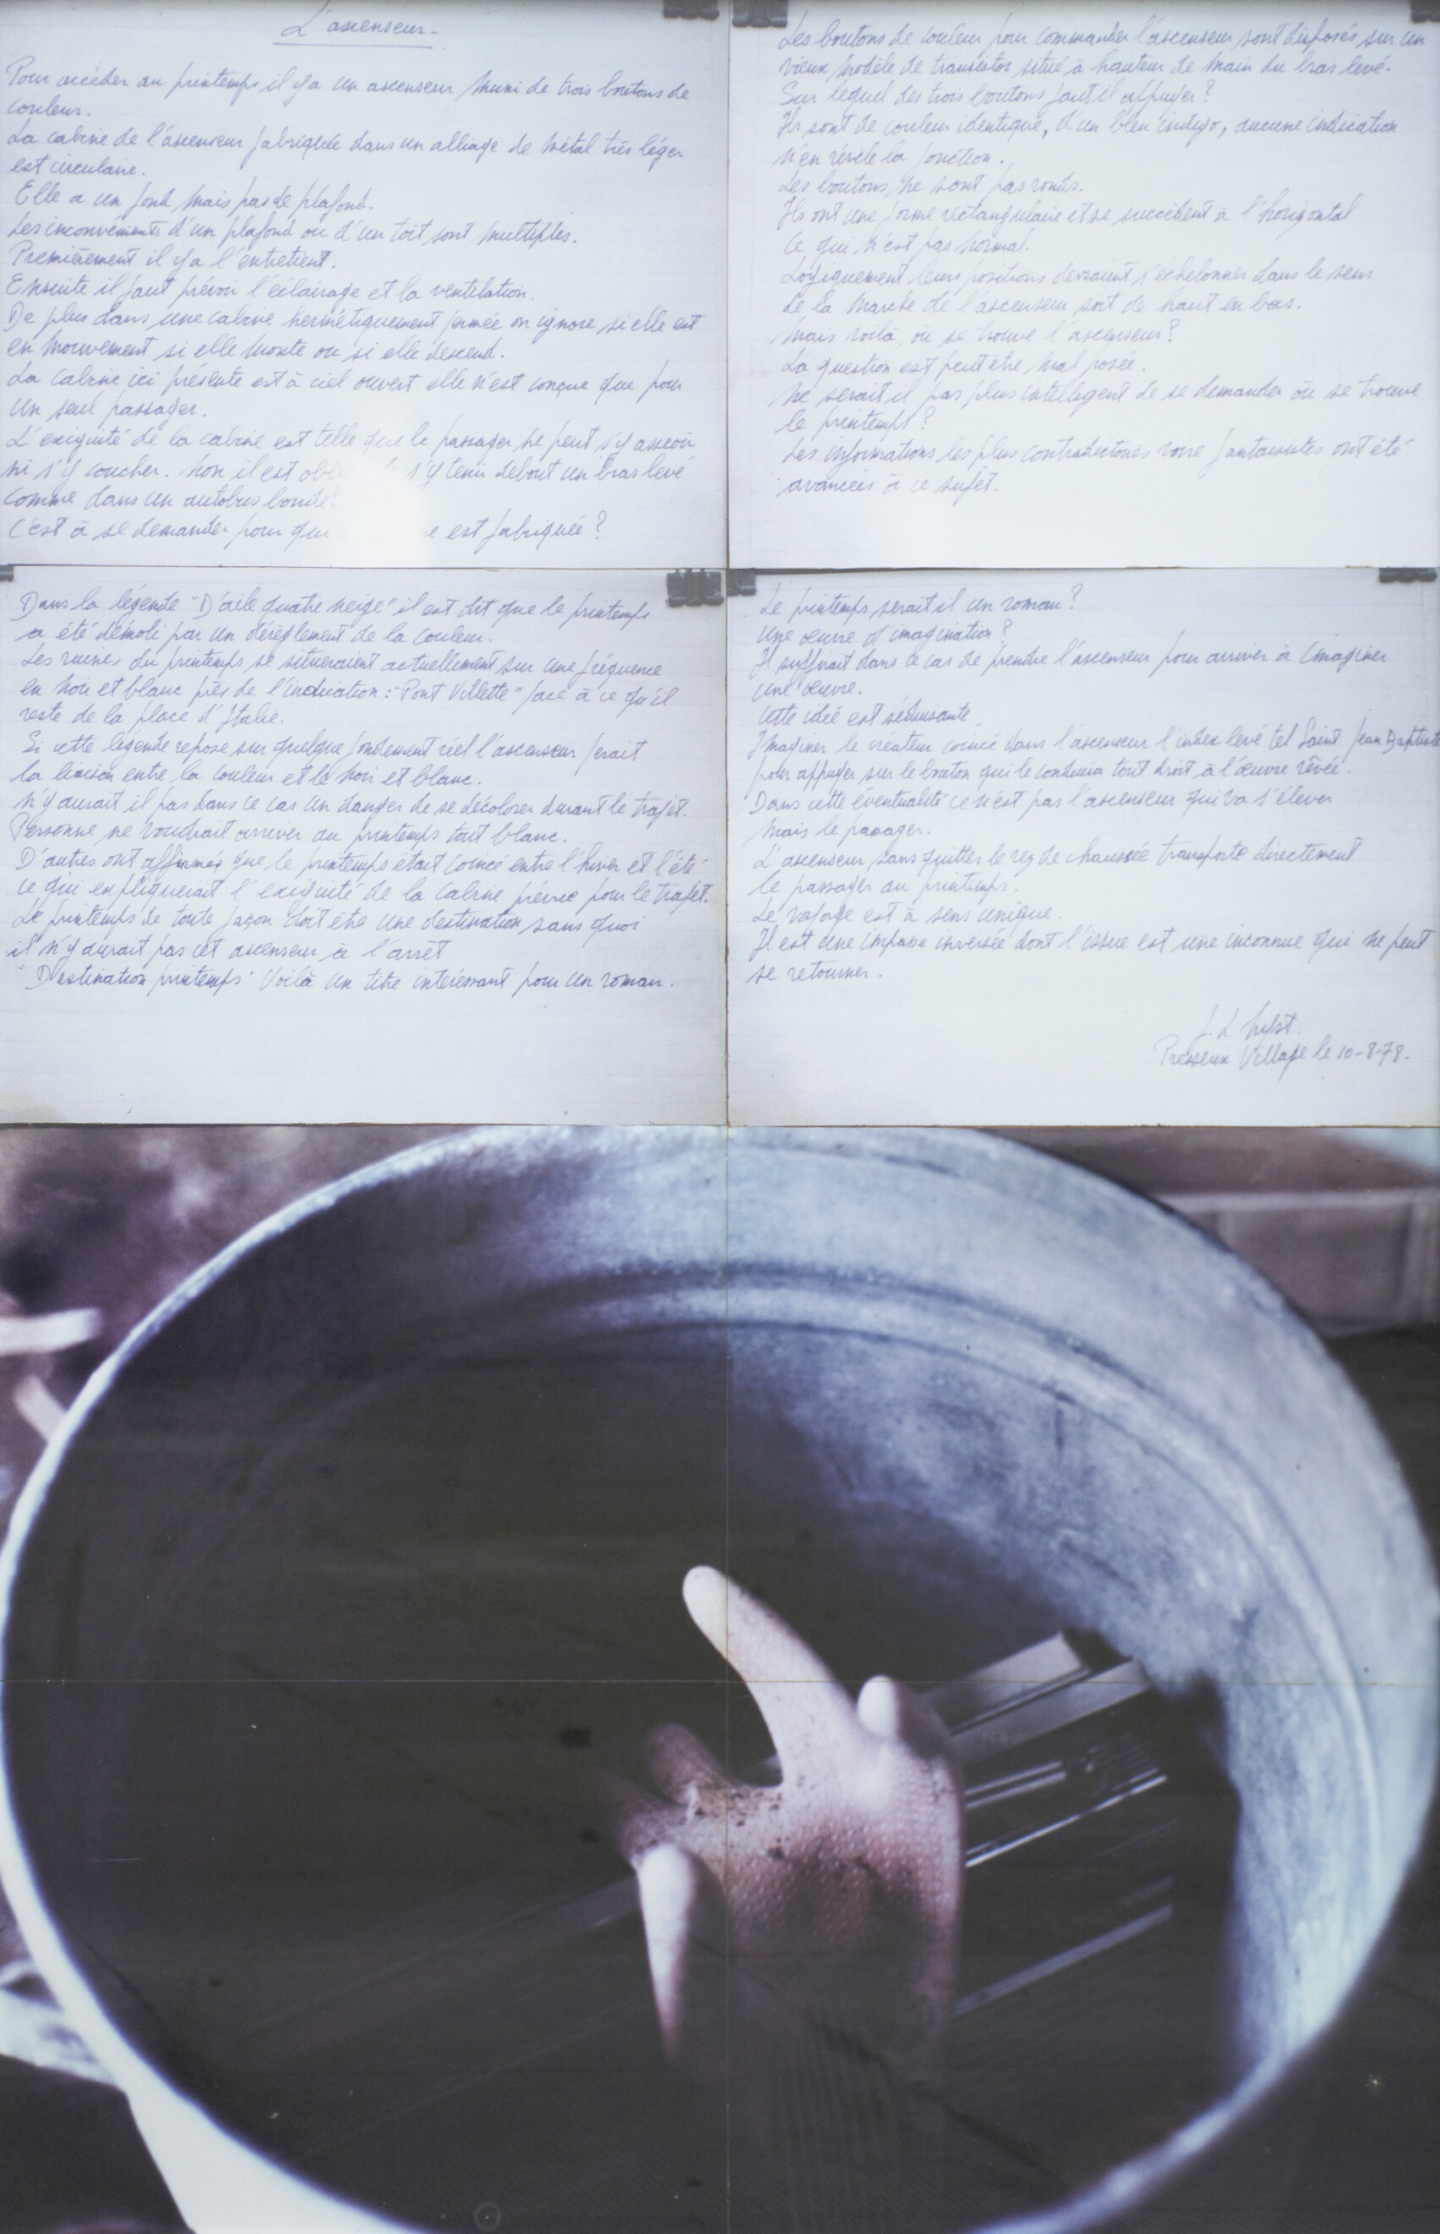 L'ascenseur.
Pour accéder au printemps il y a un ascenseur muni de trois boutons de
couleur.
La cabine de l'ascenseur fabriquée dans un alliage de métal très léger
est circulaire.
Elle a un fond mais pas de plafond.
Les inconvénients d'un plafond ou d'un toit sont multiples.
Premièrement il y a l'entretient.
Ensuite il faut prévoir l'éclairage et la ventilation.
De plus dans une cabine hermétiquement fermée on ignore si elle est
en mouvement si elle monte ou si elle descend.
La cabine ici présente est à ciel ouvert elle n'est conçue que pour
un seul passager.
L'exiguité de la cabine est telle que le passager ne peut s'y asseoir
ni s'y coucher. Non il est s'y tenir debout un bras levé
comme dans un autobus bondé.
C'est à se demander pour qui est fabriquée ?
Les boutons de couleur pour commander l'ascenseur sont disposés sur un
vieux modèle de transistor situé à hauteur de main du bras levé.
Sur lequel des trois boutons faut il appuyer ?
Ils sont de couleur identique, d'un bleu indigo, aucune indication
n'en révèle la fonction.
Les boutons ne sont pas ronds.
Ils ont une forme rectangulaire et se succèdent à l'horizontal
ce qui n'est pas normal.
Logiquement leurs positions devraient s'échelonner dans le sens
de la marche de l'ascenseur soit de haut en bas.
Mais voilà, où se trouve l'ascenseur ?
La question est peut être mal posée.
Ne serait il pas plus intelligent de se demander où se trouve
le printemps ?
Les informations les plus contradictoires voire fantaisistes ont été
avancées à ce sujet.
Dans la légende "D'aile quatre neige" il est dit que le printemps
a été démoli par un dérèglement de la couleur.
Les ruines du printemps se situeraient actuellement sur une fréquence
en noir et blanc près de l'indication : "Pont Villette" face à ce qu'il
reste de la place d'Italie.
Si cette légende repose sur quelque fondement réel l'ascenseur ferait
la liaison entre la couleur et le noir et blanc.
N'y aurait il pas dans ce cas un danger de se décolorer durant le trajet.
Personne ne voudrait arriver au printemps tout blanc.
D'autres ont affirmés que le printemps était coincé entre l'hiver et l'été
ce qui expliquerait l'exiguité de la cabine prévue pour le trajet.
Le printemps de toute façon doit être une destination sans quoi
il n'y aurait pas cet ascenseur à l'arrêt.
"Destination printemps" Voilà un titre intéressant pour un roman.
Le printemps serait il un roman ?
Une œuvre d'imagination ?
Il suffirait dans ce cas de prendre l'ascenseur pour arriver à imaginer
une œuvre.
Cette idée est séduisante.
Imaginer le créateur coincé dans l'ascenseur l'index levé tel Saint Jean Baptiste
pour appuyer sur le bouton qui le conduira tout droit à l'œuvre rêvée.
Dans cette éventualité ce n'est pas l'ascenseur qui va s'élever
mais le passager.
L'ascenseur sans quitter le rez de chaussée transporte directement
le passager au printemps.
Le voyage est à sens unique.
Il est une impasse inversée dont l'issue est une inconnue qui ne peut
se retourner.
Presseux Village le 10-8-78.